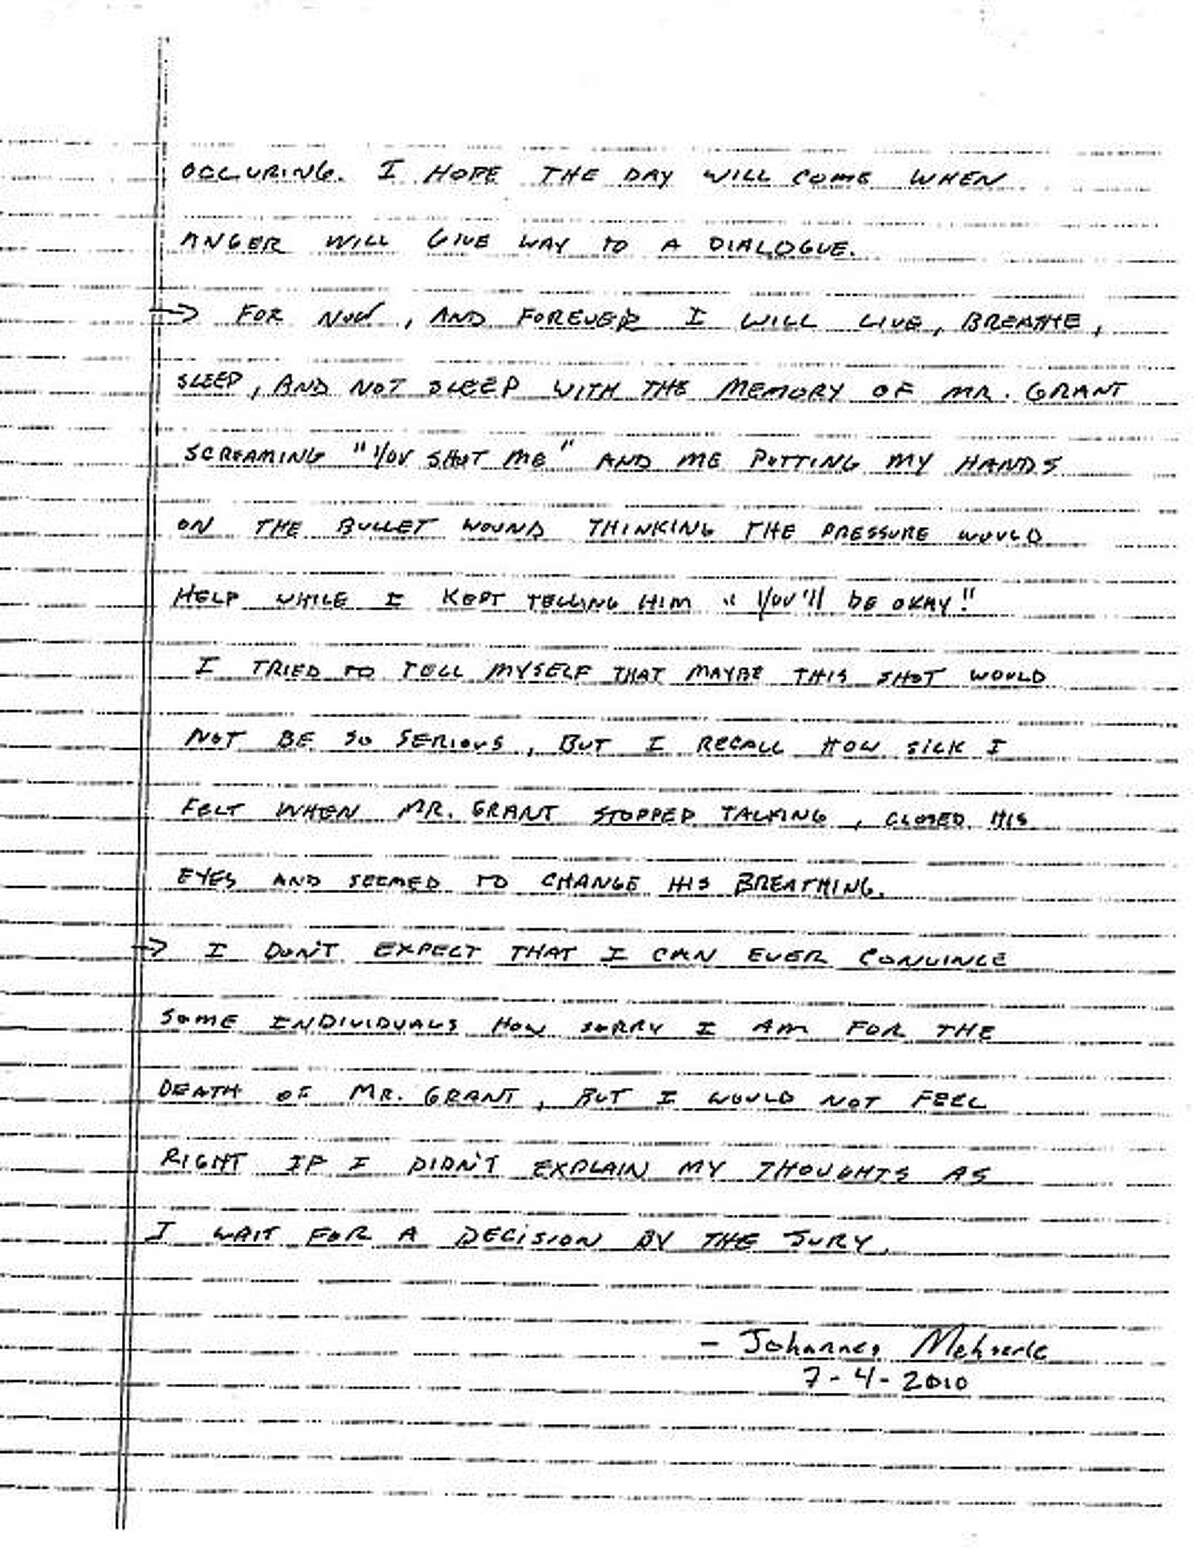 OCCURING. I HOPE THE DAY WILL COME WHEN
ANGER WILL GIVE WAY TO A DIALOGUE.
→ FOR NOW, AND FOREVER I WILL LIVE, BREATHE,
SLEEP, AND NOT SLEEP WITH THE MEMORY OF MR. GRANT
SCREAMING "YOU SHOT ME" AND ME PUTTING MY HANDS
ON THE BULLET WOUND THINKING THE PRESSURE WOULD
HELP WHILE I KEPT TELLING HIM "YOU'll be OKAY!"
I TRIED TO TELL MYSELF THAT MAYBE THIS SHOT WOULD
NOT BE SO SERIOUS, BUT I RECALL HOW SICK I
FELT WHEN MR. GRANT STOPPED TALKING, CLOSED HIS
EYES AND SEEMED TO CHANGE HIS BREATHING.
→ I DON'T EXPECT THAT I CAN EVER CONVINCE
SOME INDIVIDUALS HOW SORRY I AM FOR THE
DEATH OF MR. GRANT, BUT I WOULD NOT FEEL
RIGHT IF I DIDN'T EXPLAIN MY THOUGHTS AS
I WAIT FOR A DECISION BY THE JURY.
- Johannes Mehserle
7-4-2010